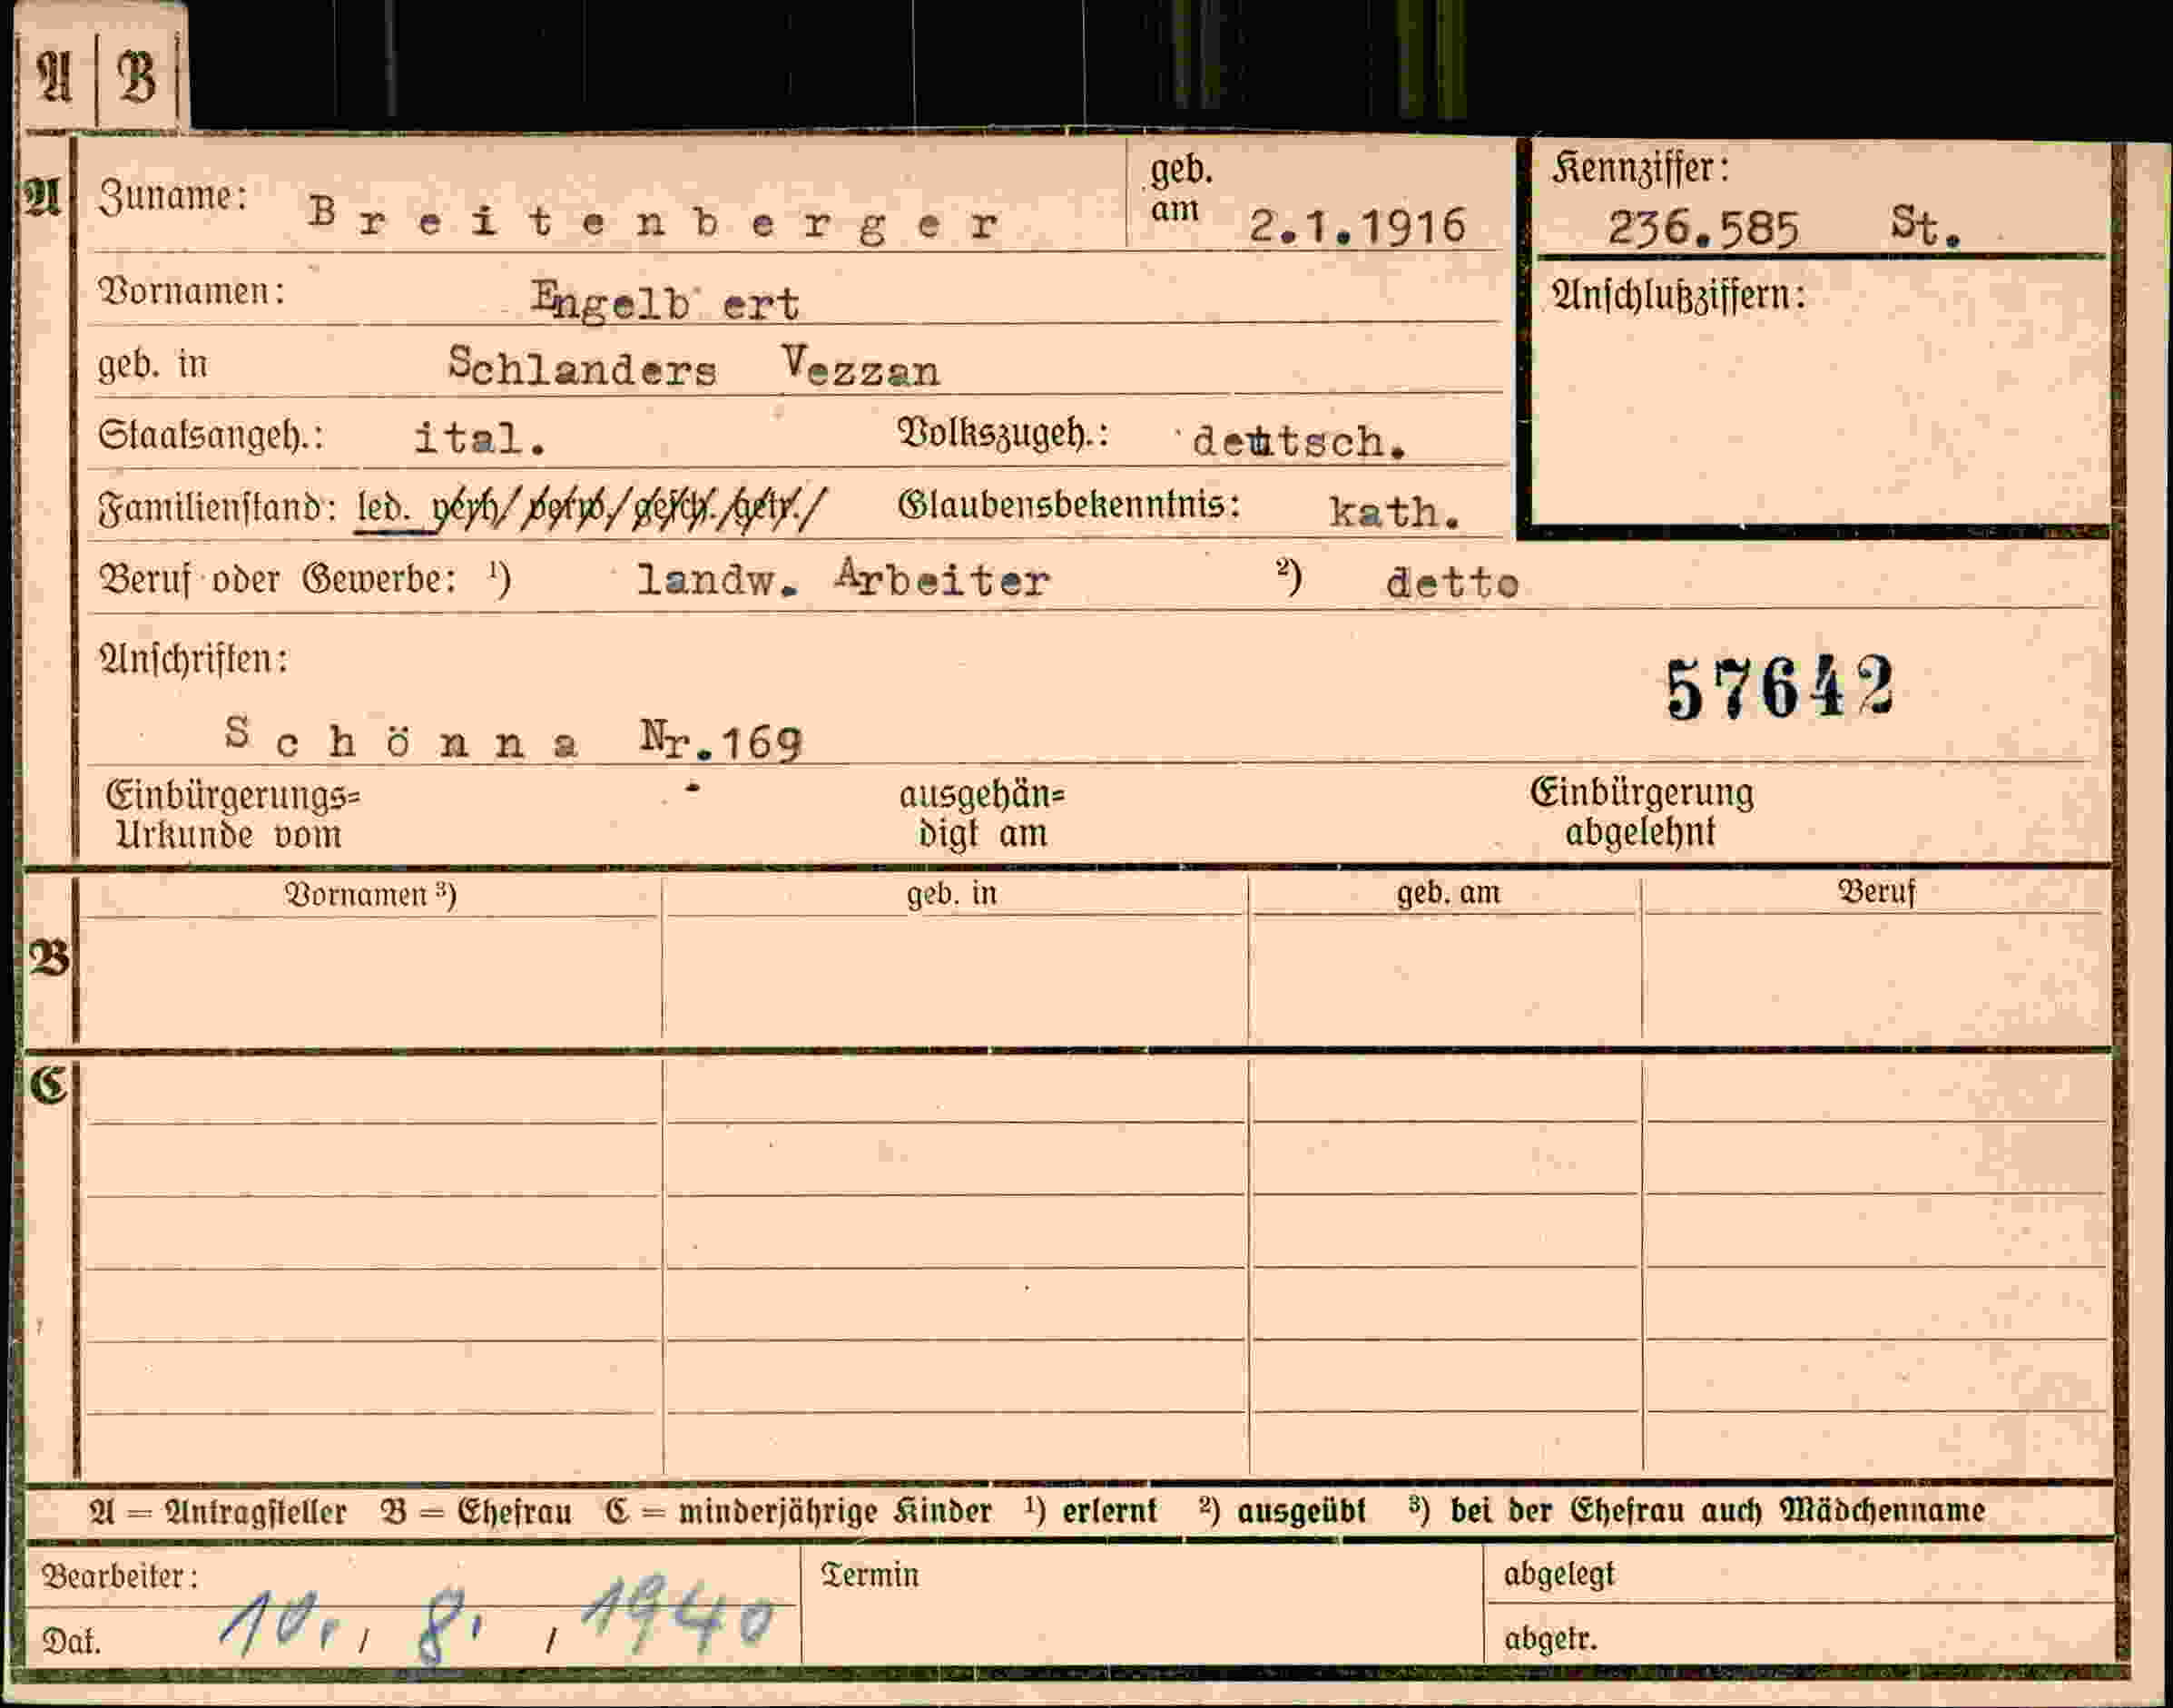 A | B
A Zuname: Breitenberger geb. am 2.1.1916 Kennziffer: 236.585 St.
Vornamen: Engelb ert Anschlußziffern:
geb. in Schlanders Vezzan
Staatsangeh.: ital. Volkszugeh.: deutsch.
Familienstand: led. verh/ verw./ gesch./getr./ Glaubensbekenntnis: kath.
Beruf oder Gewerbe: ¹) landw. Arbeiter ²) detto
Anschriften:
57642
Schönna Nr.169
Einbürgerungs= ausgehän= Einbürgerung
Urkunde vom digt am abgelehnt
Vornamen ³) geb. in geb. am Beruf
B
C
A = Antragsteller B = Ehefrau C = minderjährige Kinder ¹) erlernt ²) ausgeübt ³) bei der Ehefrau auch Mädchenname
Bearbeiter: Termin abgelegt
Dat. 10. / 8. / 1940 abgetr.